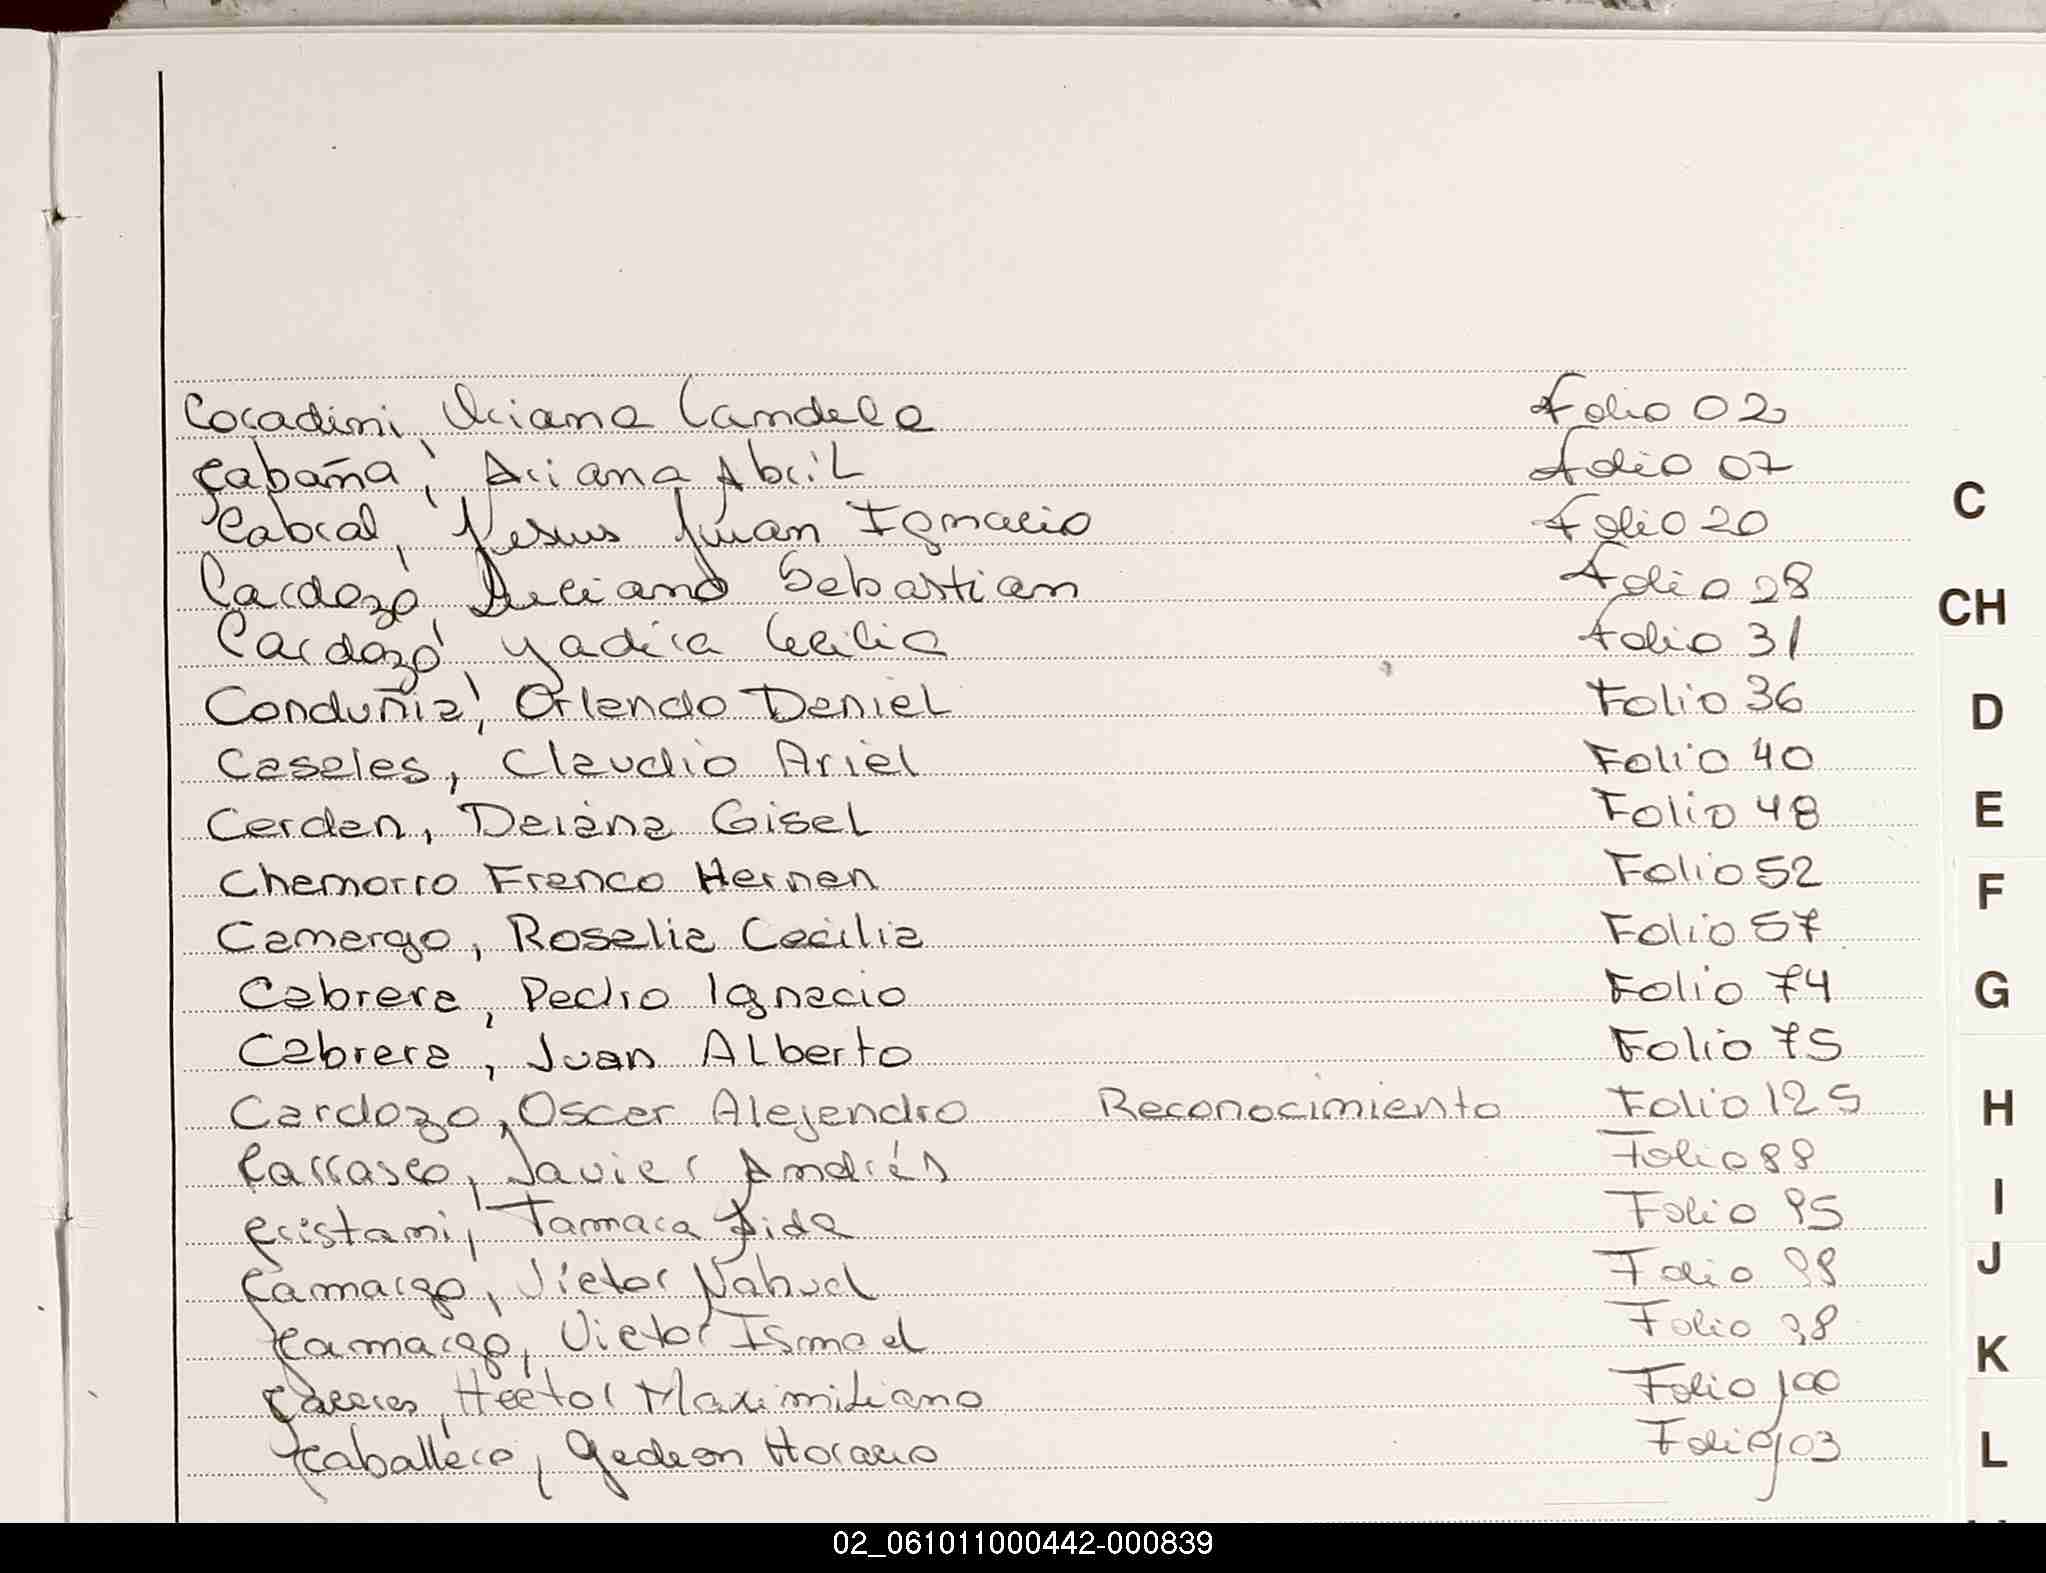 Cocadini, Uriana Candela Folio 02
Cabaña, Ariana Abril Folio 07
Cabral, Jesus Juan Ignacio Folio 20
Cardozo Luciano Sebastian Folio 28
Cardozo Yadira Cecilia Folio 31
Conduñia, Orlando Daniel Folio 36
Casales, Claudio Ariel Folio 40
Cerdan, Daiana Gisel Folio 48
Chamorro Franco Hernan Folio 52
Camargo, Rosalia Cecilia Folio 57
Cabrera, Pedro Ignacio Folio 74
Cabrera, Juan Alberto Folio 75
Cardozo, Oscar Alejandro Reconocimiento Folio 125
Carrasco, Javier Andrés Folio 88
Cristami, Tamara Aida Folio 95
Camargo, Victor Nahuel Folio
Camargo, Victor Ismael Folio 98
Caceres, Hector Maximiliano Folio 100
Caballero, Gedeon Horacio Folio 103
C
CH
D
E
F
G
H
I
J
K
L
02_061011000442-000839